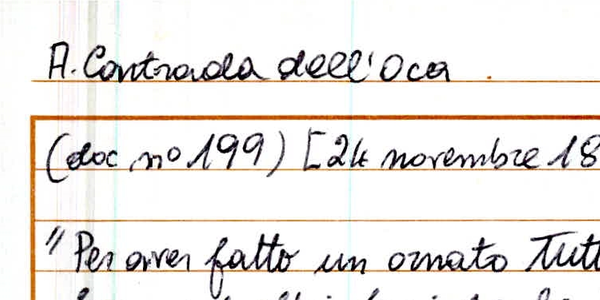 A. Contrada dell'Oca
(doc nº 199) [24 novembre 18
"Per aver fatto un ornato Tutt